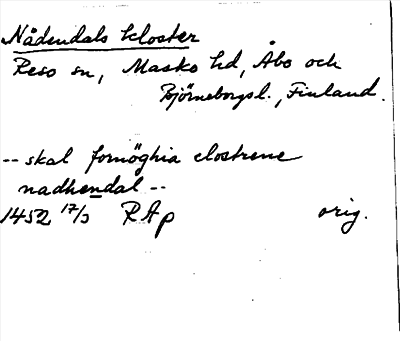 Nådendals kloster
Reso sn, Masko hd, Åbo och
Björneborgs l., Finland.
-- skal fornöghia clostrene
nadhendal --
1452 17/3 RAp orig.